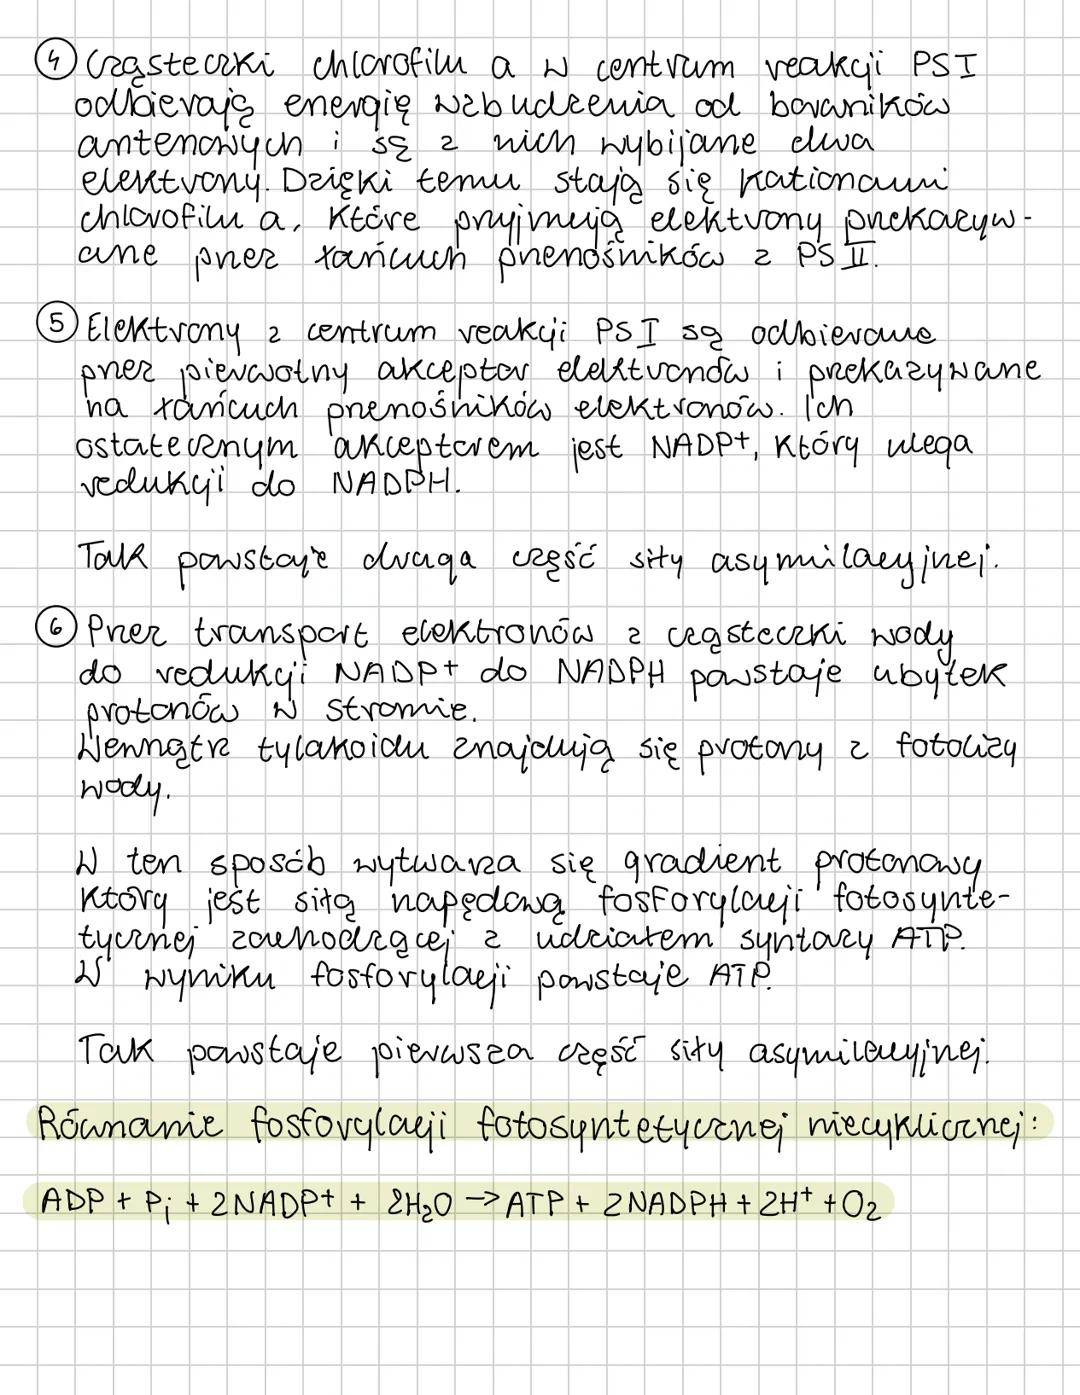 ④ Cząsteczki chlorofilu a w centrum reakcji PSI
odbierają energię wzbudzenia od barwników
antenowych i są z nich wybijane dwa
elektrony. Dzięki temu stają się kationami
chlorofilu a, które przyjmują elektrony przekazyw-
ane przez łańcuch przenośników z PSII.
⑤ Elektrony z centrum reakcji PSI są odbierane
przez pierwotny akceptor elektronów i przekazywane
na łańcuch przenośników elektronów. Ich
ostatecznym akceptorem jest NADP+, który ulega
redukcji do NADPH.
Tak powstaje druga część siły asymilacyjnej.
⑥ Przez transport elektronów z cząsteczki wody
do redukcji NADP+ do NADPH powstaje ubytek
protonów w stromie.
Wewnątrz tylakoidu znajdują się protony z fotolizy
wody.
W ten sposób wytwarza się gradient protonowy
który jest siłą napędową fosforylacji fotosynte-
tycznej zachodzącej z udziałem syntazy ATP.
W wyniku fosforylacji powstaje ATP.
Tak powstaje pierwsza część siły asymilacyjnej.
Równanie fosforylacji fotosyntetycznej niecyklicznej:
ADP + Pi + 2NADP+ + 2H₂O → ATP + 2NADPH + 2H⁺ + O₂